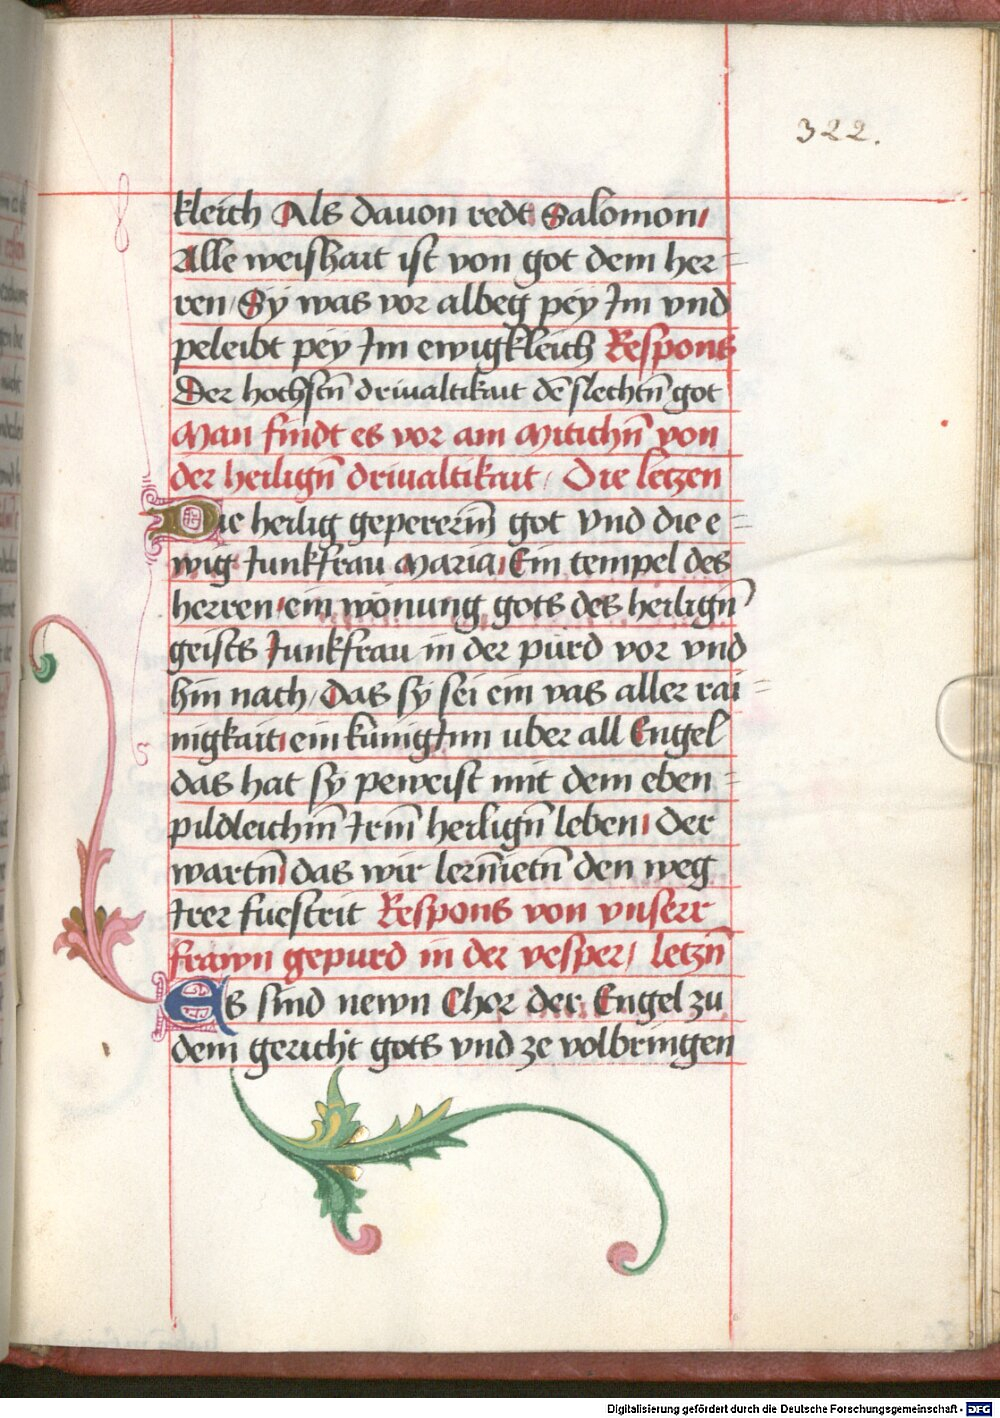 322.
kleich Als dauon redt Salomon/
Alle weishait ist von got dem her=
ren/ Sÿ was vor albeg peÿ Im vnd
peleibt peÿ Im ewigkleich Respons
Der hochstn̄ driualtikait dē slechtn̄ got
Man findt es vor am Mitichn̄ von
der heilign̄ driualtikait/ Die letzen
Die heilig gepererin̄ got vnd die e=
wig Junkfrau Maria/ Ein tempel des
herren/ ein wonung gots des heilign̄
geists Junkfrau in der purd vor vnd
hin nach/ Das sÿ sei ein vas aller rai=
nigkait/ ein kunigInn uber all Engel
das hat sÿ peweist mit dem eben=
pildleichm̄ Irm̄ heilign̄ leben/ der
wartn̄/ das wir lern̄ietn̄ den weg
Irer fuestrit Respons von vnserr
frawn gepurd in der vesper/ letzn̄
Es sind newn Chor der Engel zu
dem gericht gots vnd ze volbringen
Digitalisierung gefördert durch die Deutsche Forschungsgemeinschaft - DFG